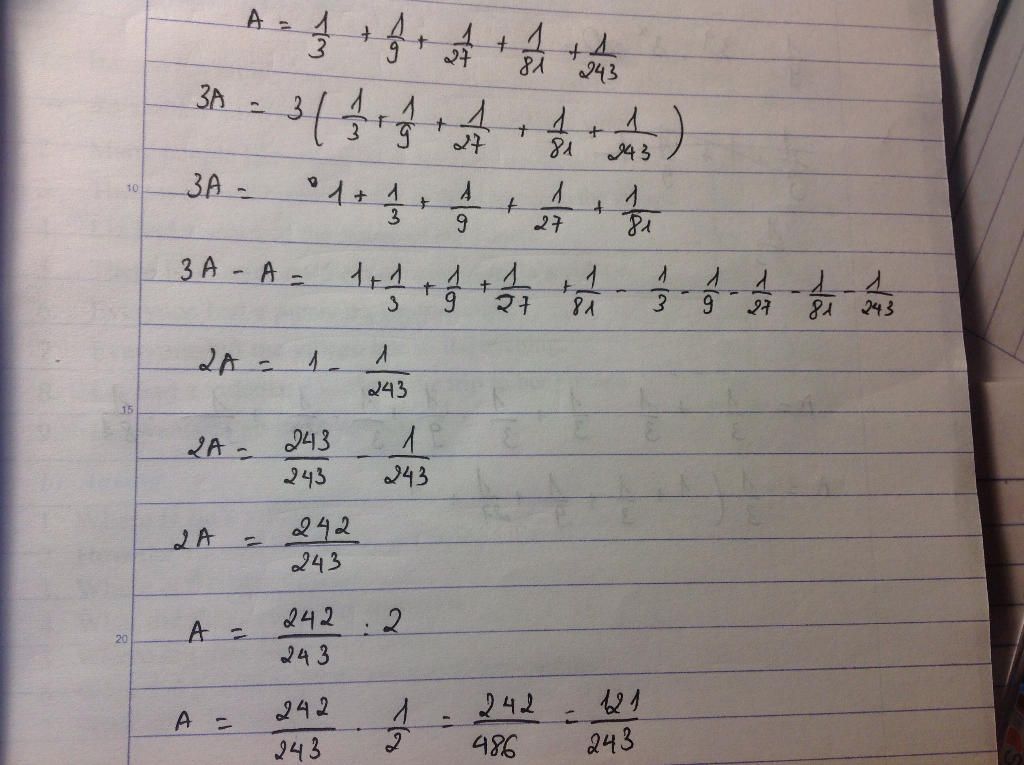 A = 1/3 + 1/9 + 1/27 + 1/81 + 1/243
3A = 3 ( 1/3 + 1/9 + 1/27 + 1/81 + 1/243 )
10
3A = 1 + 1/3 + 1/9 + 1/27 + 1/81
3A - A = 1 + 1/3 + 1/9 + 1/27 + 1/81 - 1/3 - 1/9 - 1/27 - 1/81 - 1/243
2A = 1 - 1/243
15
2A = 243/243 - 1/243
2A = 242/243
20
A = 242/243 : 2
A = 242/243 . 1/2 = 242/486 = 121/243